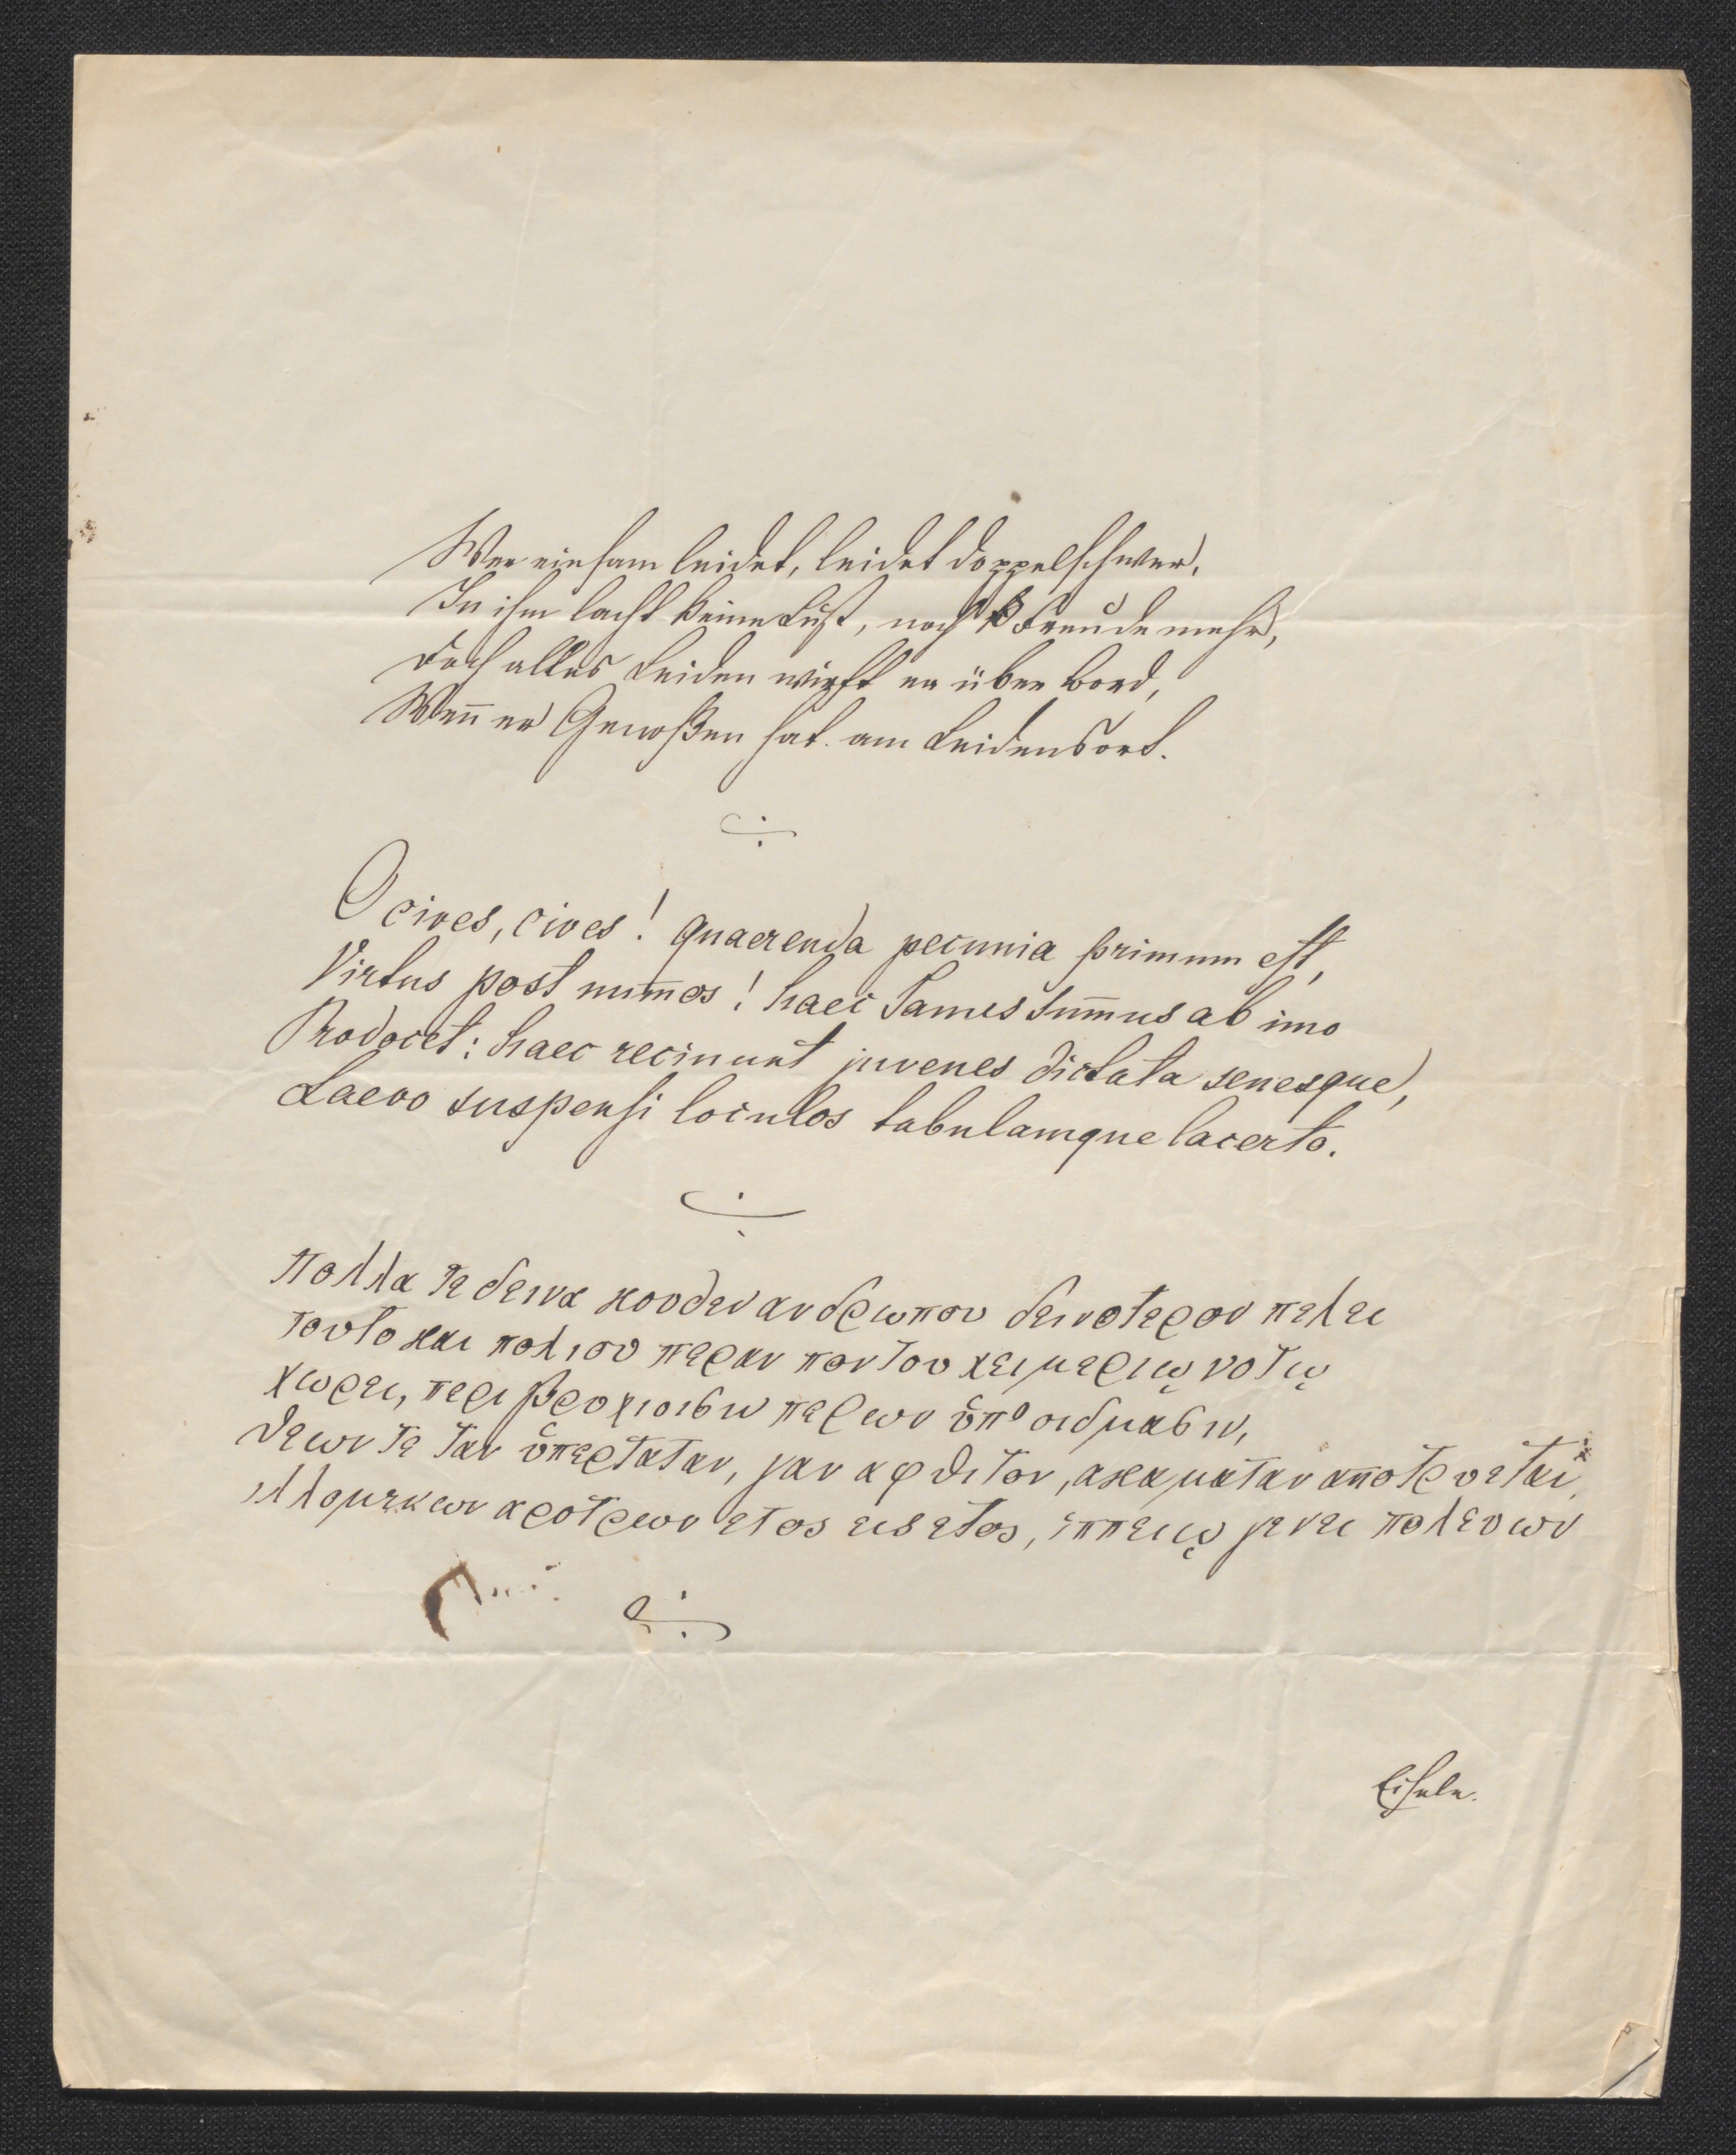 Wer einsam leidet, leidet doppelschwer,
In ihm lacht keine Lust, noch Freude mehr,
Doch alles Leiden wirft er über Bord,
Weñ er Genoßen hat am Leidensort.
O cives, cives! quaerenda pecunia primum est,
Virtus post num̄os! haec Janus sum̄us ab imo
Prodocet: haec recinunt juvenes dictata senesque,
Laevo suspensi loculos tabulamque lacerto.
Πολλα τε δεινα κουδεν ανδρωπου δεινοτερον πελει
τουτο και πολιου περαν ποντου χειμεριῳ νοτῳ
χωρει, περιβρυχιοισιν περων ὑπ' οιδμασιν,
θεων τε ταν ὑπερταταν, γαν αφθιτον, ακαματαν αποτρυεται,
ιλλομενων αροτρων ετος εις ετος, ἱππειῳ γενει πολευων
Eisele.